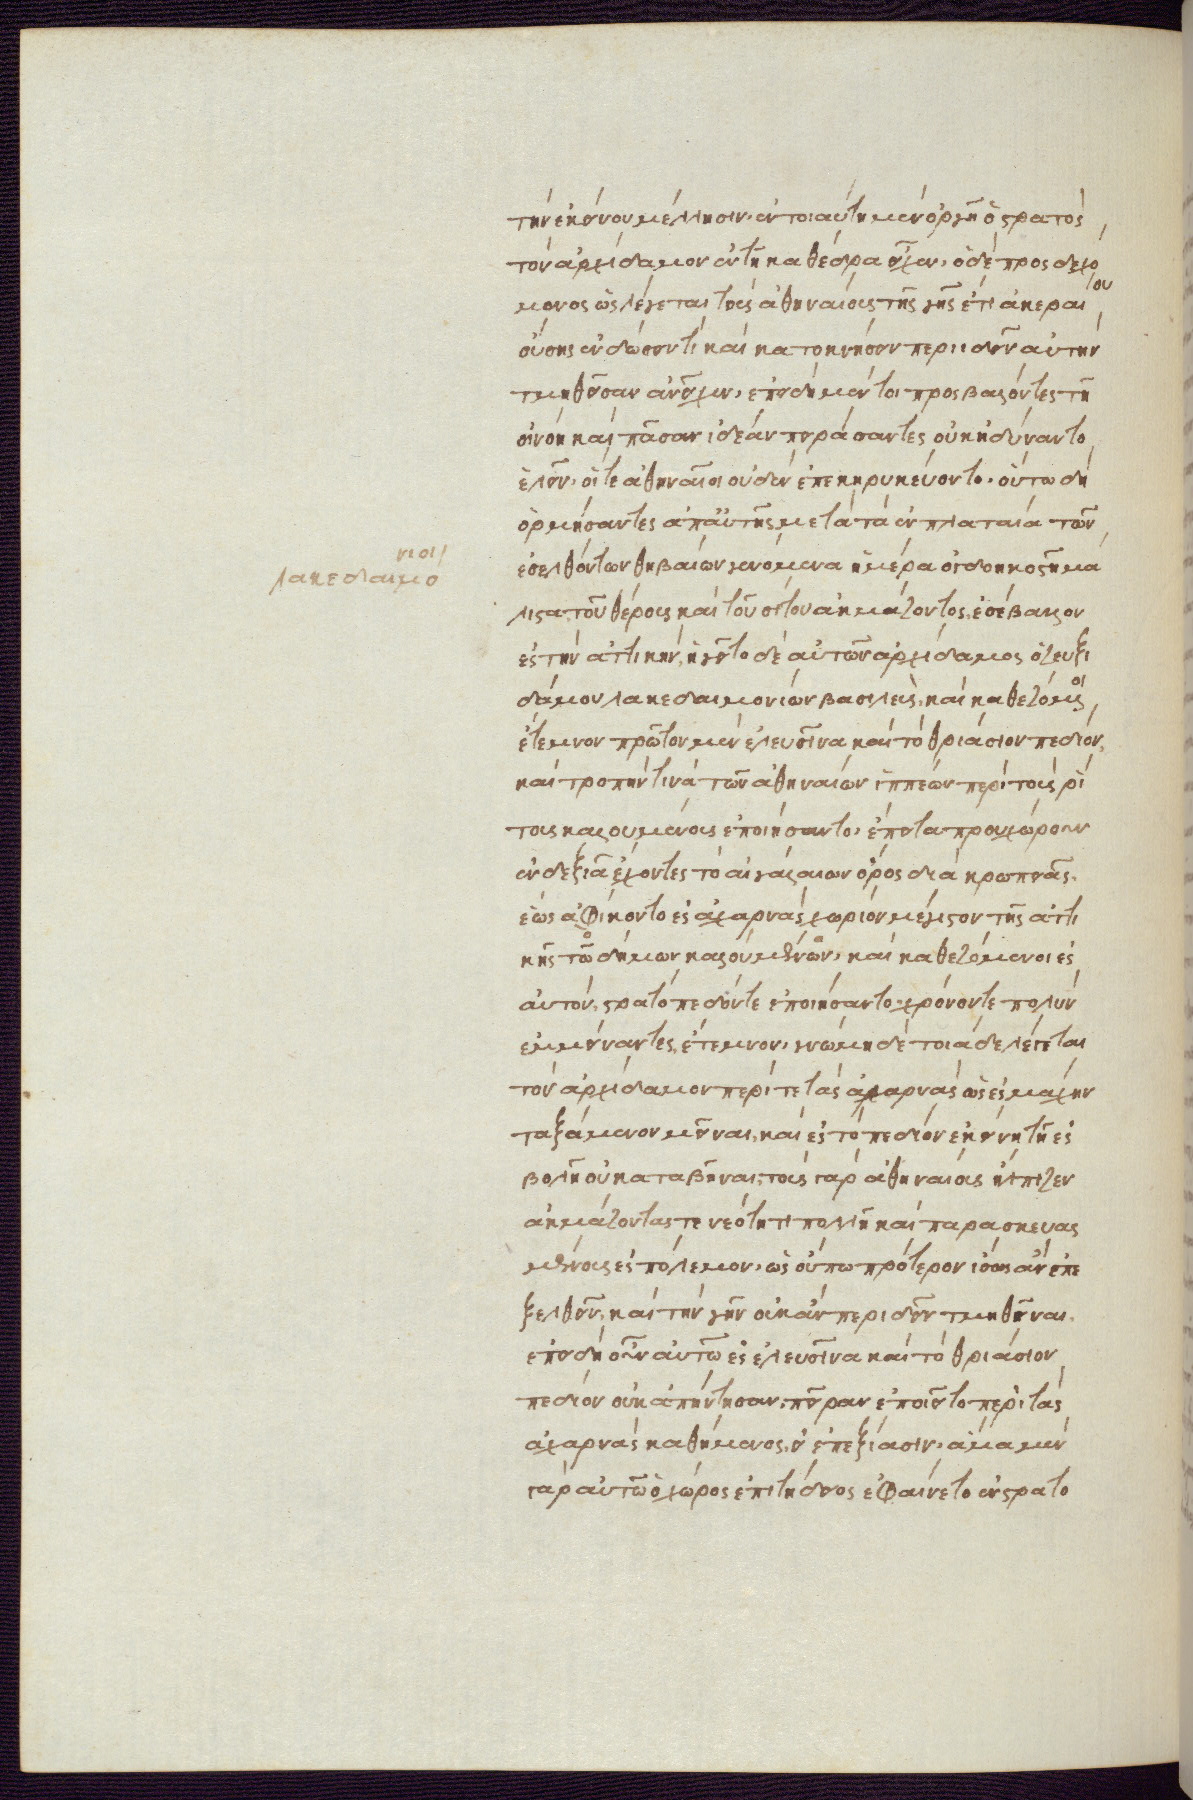 τὴν ἐκείνου μέλλησιν. ἐν τοιαύτη μὲν ὀργῆ ὁ στρατὸς
τὸν ἀρχίδαμον ἐν τῆ καθέδρα εἶχεν. ὁ δὲ προσδεχό
μενος ὡς λέγεται τοὺς ἀθηναίους τῆς γῆς ἔτι ἀκεραίου
οὔσης ἐνδώσειν τί καὶ κατοκνήσειν περιιδεῖν αὐτὴν
τμηθεῖσαν ἀνεῖχεν. ἐπειδὴ μέντοι προσβαλόντες τῆ
οἰνόη καὶ πᾶσαν ἰδέαν πειράσαντες οὐκ ἠδύναντο
ἑλεῖν. οἵ τε ἀθηναῖοι οὐδὲν ἐπεκηρυκεύοντο. οὕτω δὴ
ὁρμήσαντες ἀπ' αὐτῆς μετὰ τὰ ἐν πλαταία τῶν
ἐσελθόντων θηβαίων γενόμενα ἡμέρα ὀγδοηκοστῆ μά
λιστα, τοῦ θέρους καὶ τοῦ σίτου ἀκμάζοντος, ἐσέβαλλον
ἐς τὴν ἀττικήν. ἡγεῖτο δὲ αὐτῶν ἀρχίδαμος ὁ ζευξι
δάμου λακεδαιμονίων βασιλεύς. καὶ καθεζόμενοι
ἔτεμνον πρῶτον μὲν ἐλευσῖνα καὶ τὸ θριάσιον πεδίον.
καὶ τροπήν τινὰ τῶν ἀθηναίων ἱππέων περὶ τοὺς ῥεί
τους καλουμένους ἐποιήσαντο. ἔπειτα προυχώρουν
ἐν δεξιᾶ ἔχοντες τὸ αἰγάλαιων ὄρος διὰ κρωπειᾶς.
ἕως ἀφίκοντο ἐς ἀχαρνὰς χωρίον μέγιστον τῆς ἀττι
κῆς τῶν δήμων καλουμένων. καὶ καθεζόμενοι ἐς
αὐτὸν, στρατόπεδόν τε ἐποιήσαντο. χρόνον τε πολὺν
ἐμμείναντες, ἔτεμνον. γνώμη δὲ τοιάδε λέγεται
τὸν ἀρχίδαμον περί τε τὰς ἀχαρνὰς ὡς ἐς μάχην
ταξάμενον μεῖναι, καὶ ἐς τὸ πεδίον ἐκείνη τῆ ἐς
βολῆ οὐ καταβῆναι. τοὺς γὰρ ἀθηναίους ἤλπιζεν
ἀκμάζοντάς τε νεότητι πολλῆ καὶ παρασκευας
μένους ἐς πόλεμον. ὡς οὔπω πρότερον ἴσως ἂν ἐπε
ξελθεῖν, καὶ τὴν γῆν οὐκ ἂν περιιδεῖν τμηθῆναι.
ἐπειδὴ οὖν αὐτῶ ἐς ἐλευσῖνα καὶ τὸ θριάσιον
πεδίον οὐκ ἀπήντησαν. πεῖραν ἐποιεῖτο περὶ τὰς
ἀχαρνὰς καθήμενος, εἰ ἐπεξίασιν. ἅμα μὲν
γὰρ αὐτῶ ὁ χῶρος ἐπιτήδειος ἐφαίνετο ἐνστρατο
λακεδαιμόνιοι